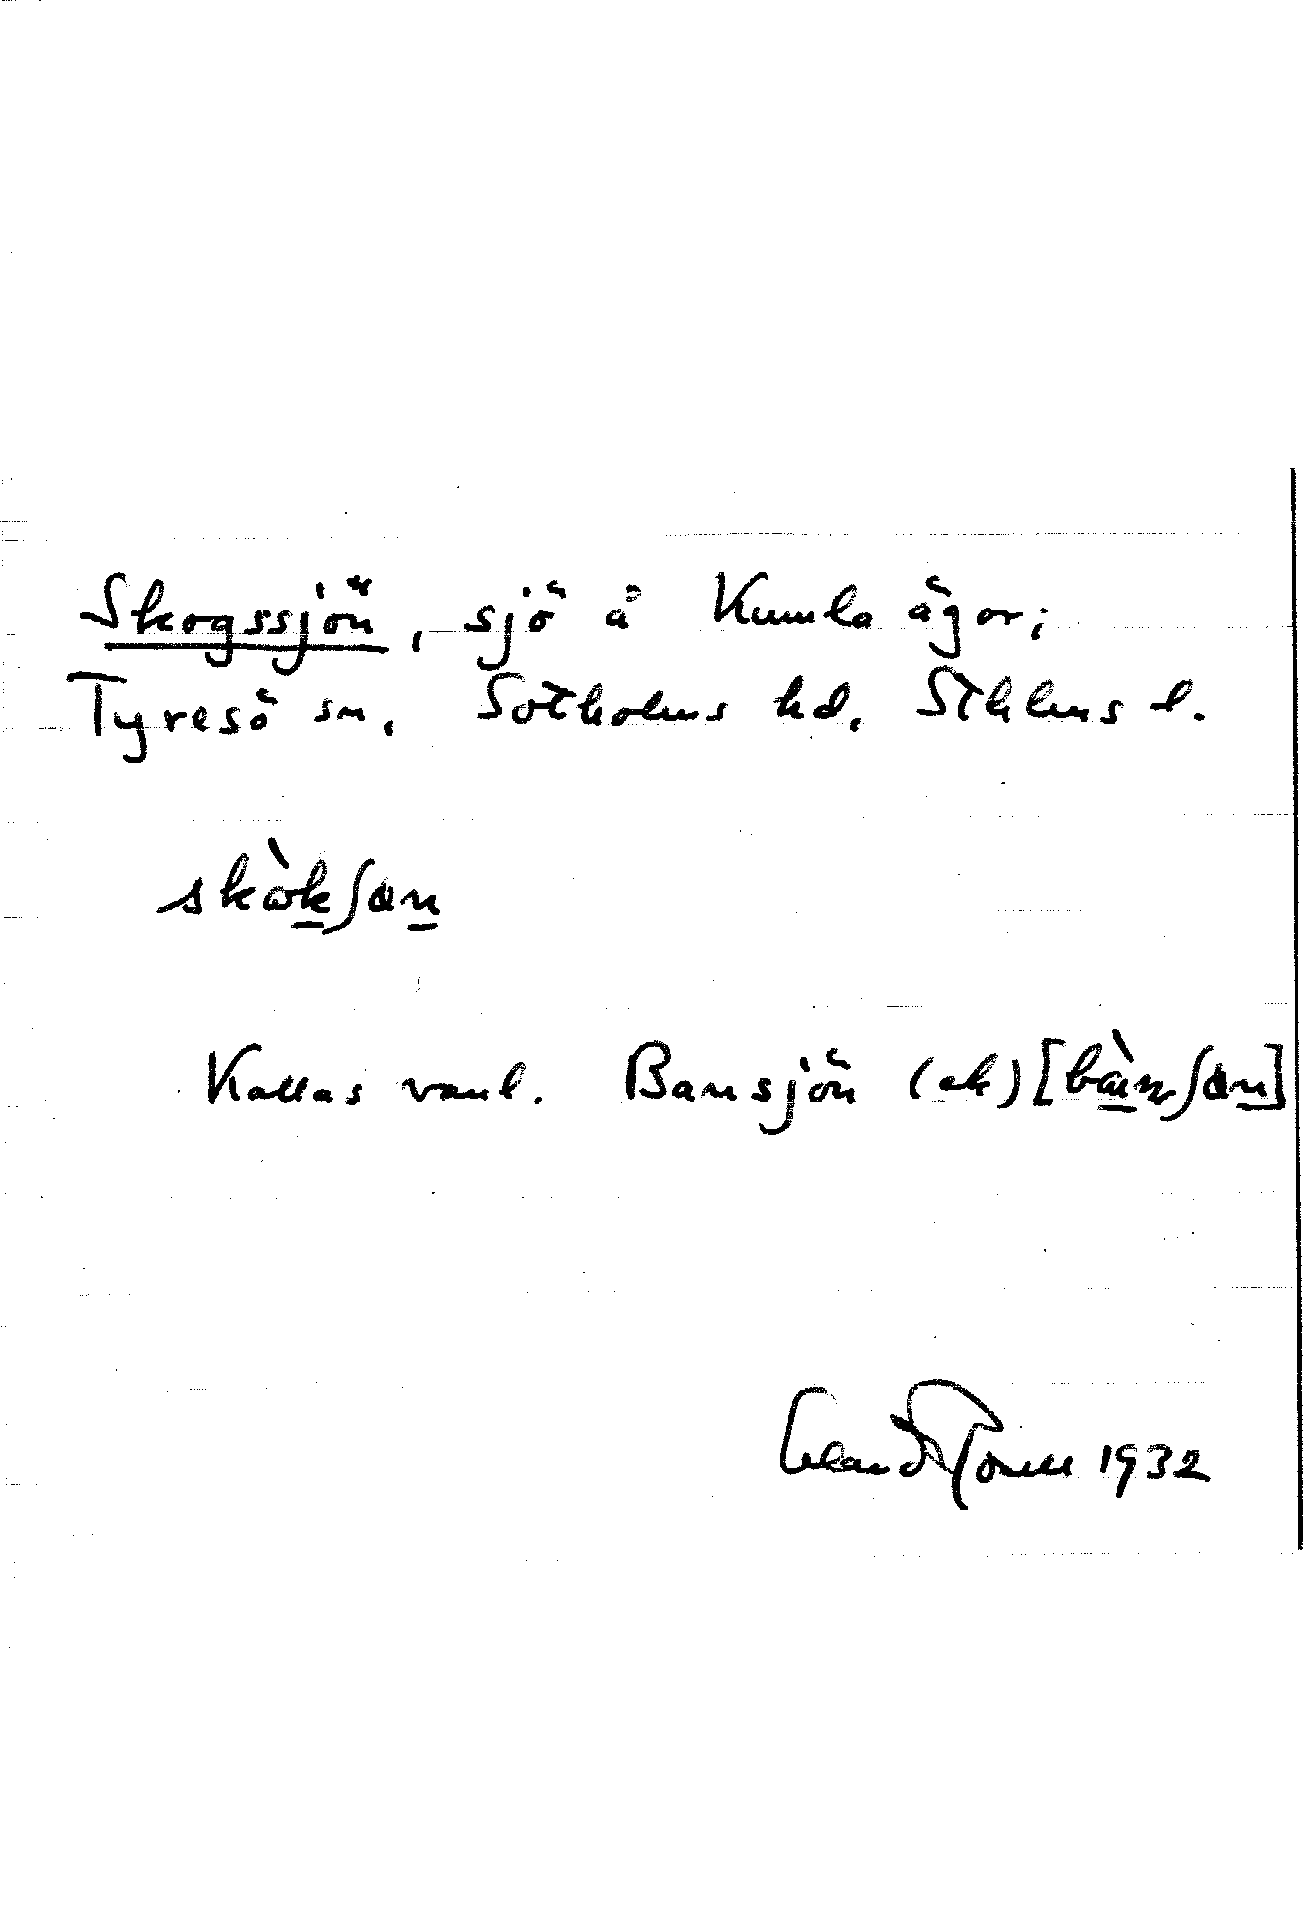 Skogssjön, sjö å Kumla ägor;
Tyresö sn, Sotholms hd, Sthlms l.
skòkʃɵn
Kallas vanl. Bansjön (ak) [bànʃɵn]
1932